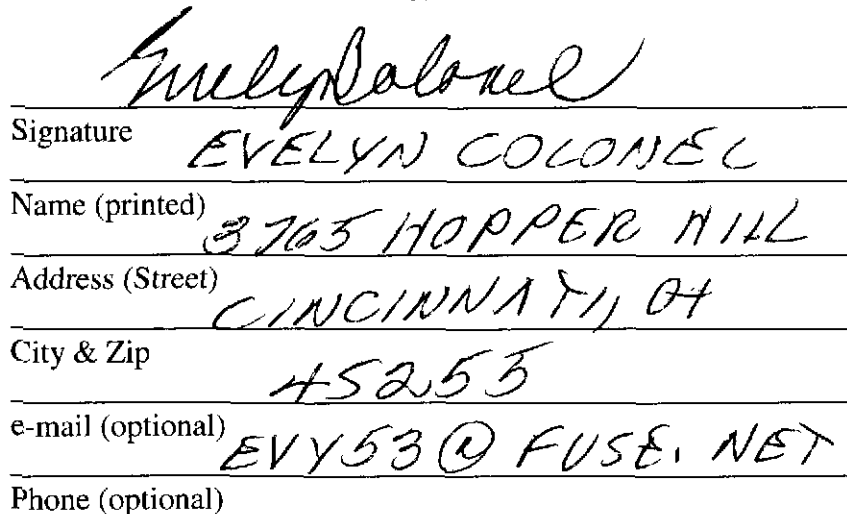 Evelyn Colonel
Signature
EVELYN COLONEL
Name (printed)
3765 HOPPER HILL
Address (Street)
CINCINNATI, OH
City & Zip
45255
e-mail (optional)
EVY53@FUSE.NET
Phone (optional)